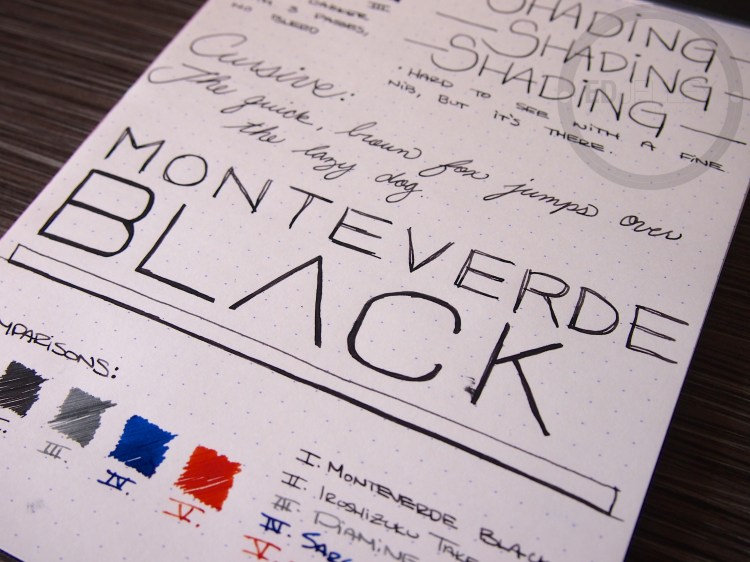 DARKER
III.
3 PASSES,
NO BLEED
SHADING
SHADING
SHADING
· HARD TO SEE WITH A FINE
NIB, BUT IT'S THERE.
Cursive:
The quick, brown fox jumps over
the lazy dog.
MONTEVERDE
BLACK
MPARISONS:
III.
IV.
V.
I. MONTEVERDE BLACK
II. IROSHIZUKU TAKE
III. DIAMINE
IV.
V.